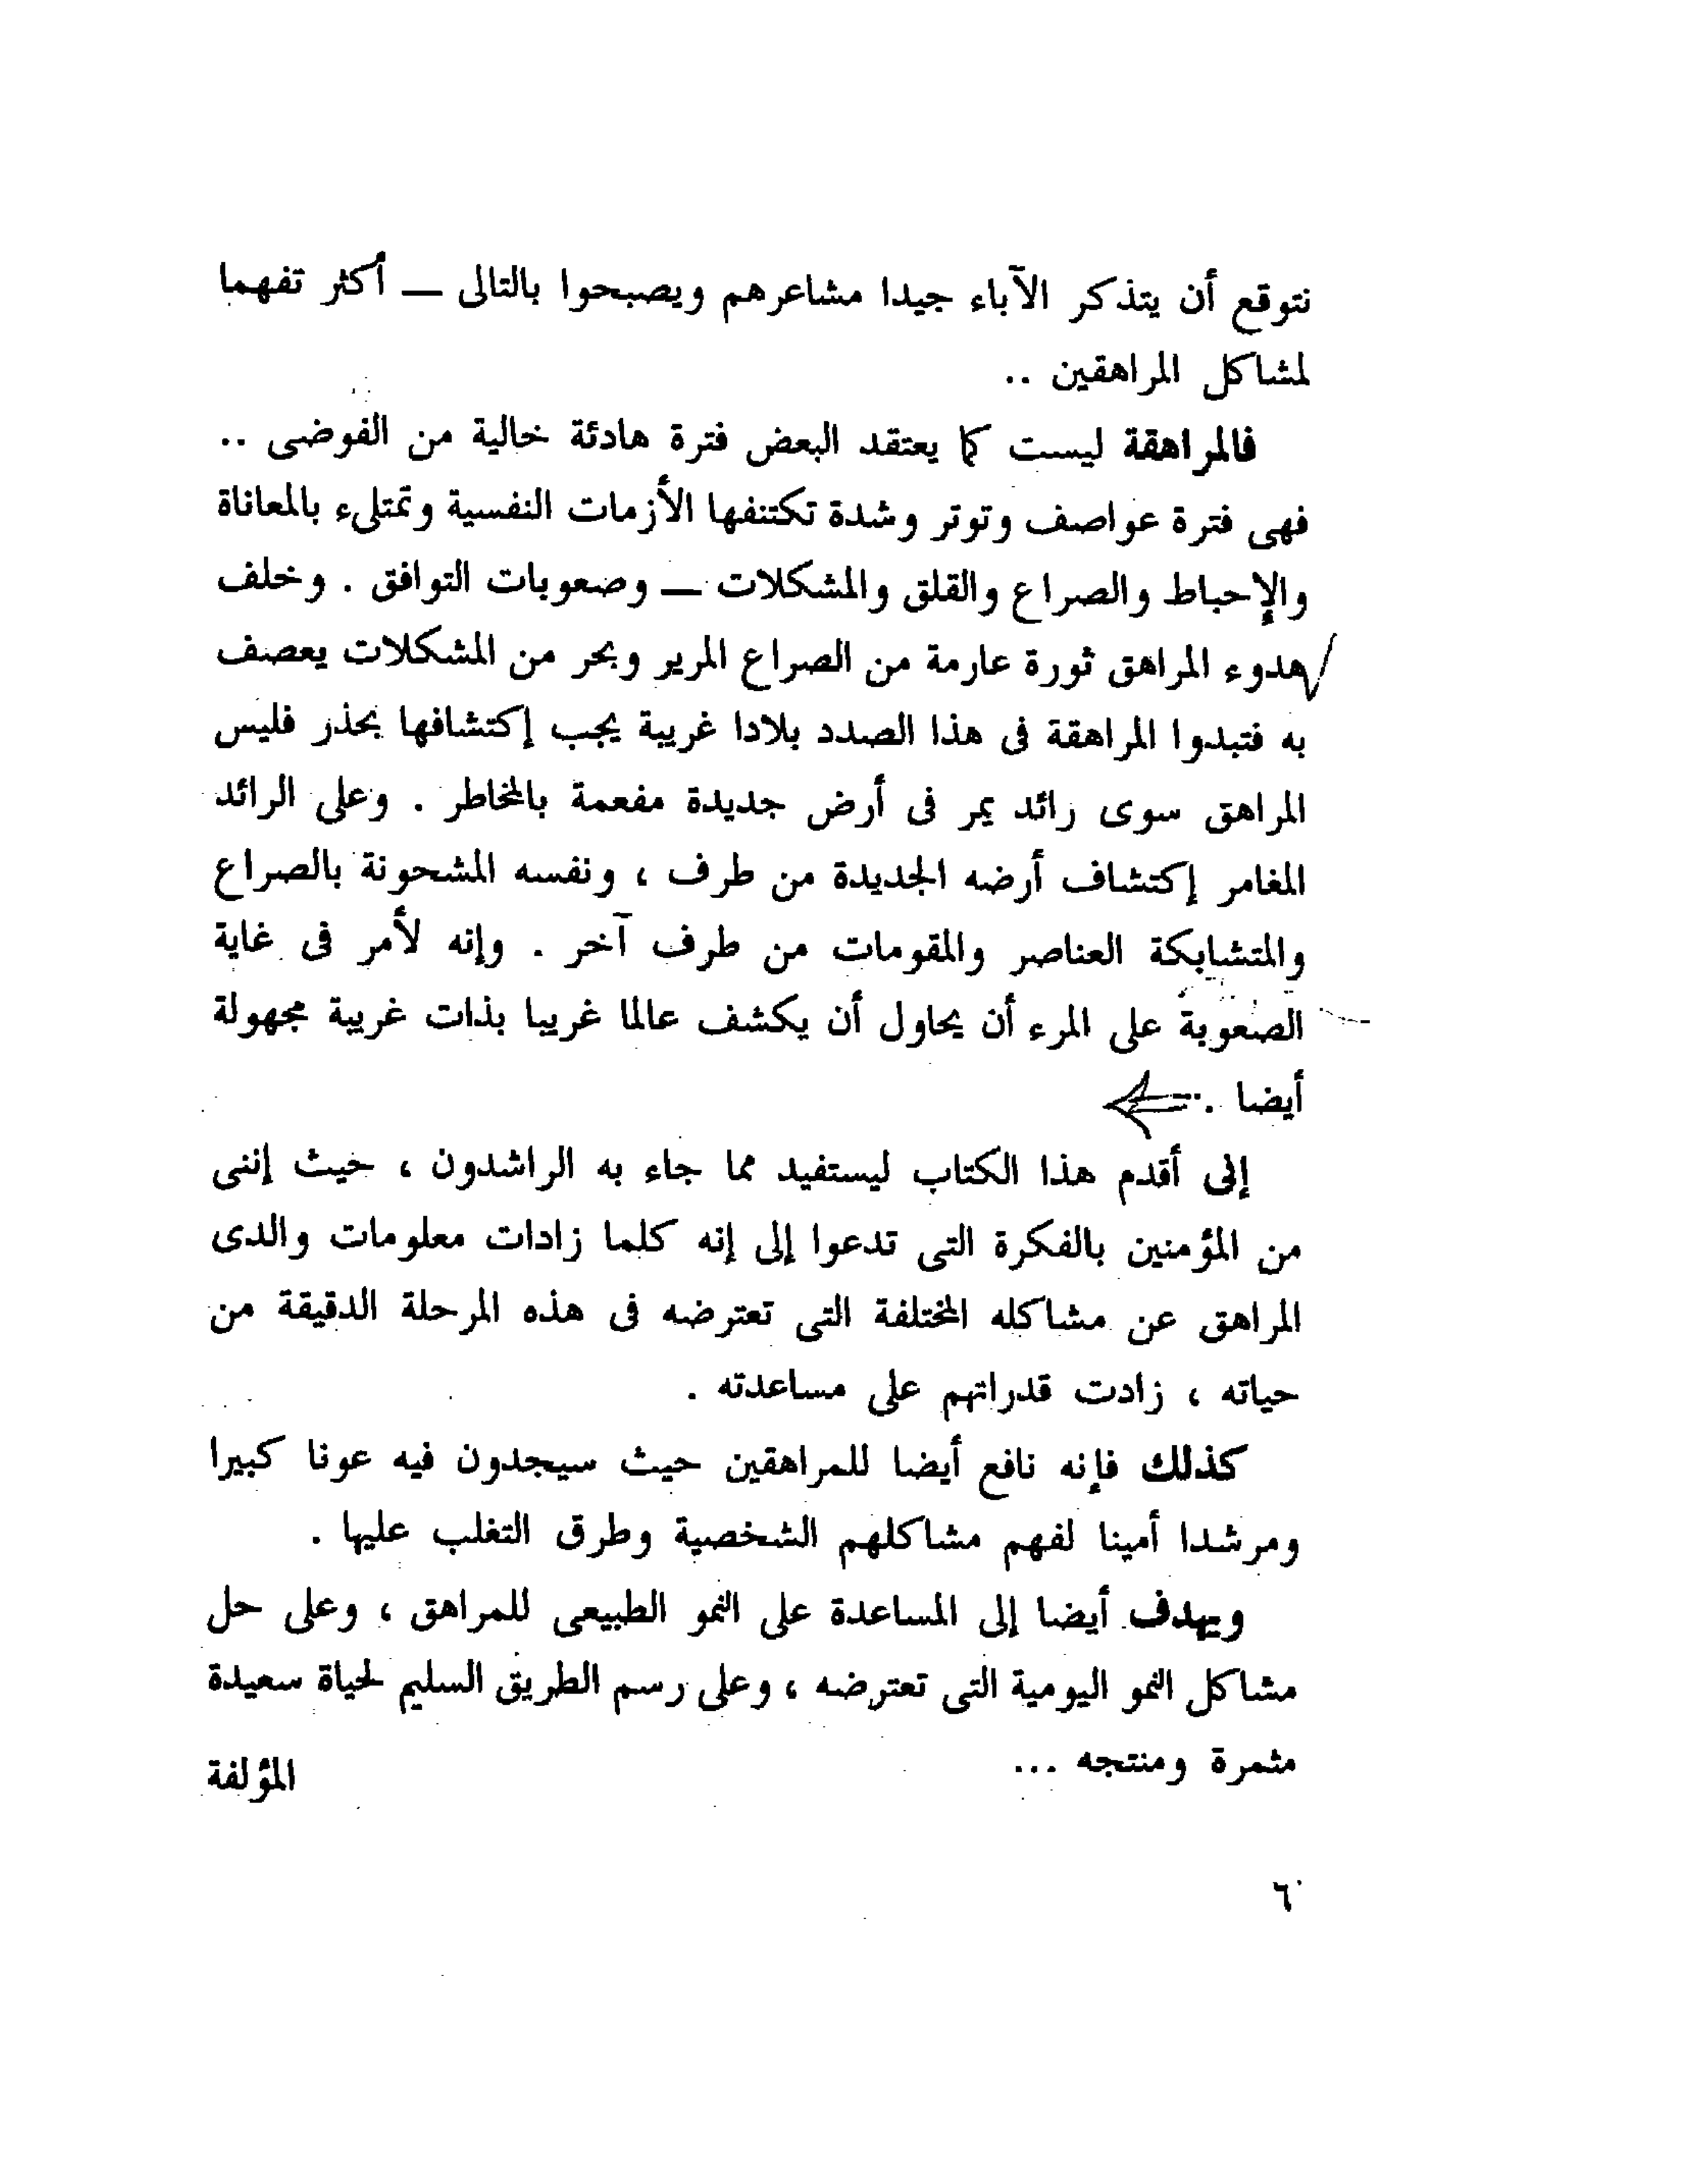 نتوقع أن يتذكر الآباء جيدا مشاعرهم ويصبحوا بالتالى — أكثر تفهما
لمشاكل المراهقين ..
فالمراهقة ليست كما يعتقد البعض فترة هادئة خالية من الفوضى ..
فهى فترة عواصف وتوتر وشدة تكتنفها الأزمات النفسية وتمتلىء بالمعاناة
والإحباط والصراع والقلق والمشكلات — وصعوبات التوافق . وخلف
هدوء المراهق ثورة عارمة من الصراع المرير وبحر من المشكلات يعصف
به فتبدوا المراهقة فى هذا الصدد بلادا غريبة يجب إكتشافها بحذر فليس
المراهق سوى رائد يمر فى أرض جديدة مفعمة بالمخاطر . وعلى الرائد
المغامر إكتشاف أرضه الجديدة من طرف ، ونفسه المشحونة بالصراع
والمتشابكة العناصر والمقومات من طرف آخر . وإنه لأمر فى غاية
الصعوبة على المرء أن يحاول أن يكشف عالما غريبا بذات غريبة مجهولة
أيضا .
إنى أقدم هذا الكتاب ليستفيد مما جاء به الراشدون ، حيث إننى
من المؤمنين بالفكرة التى تدعوا إلى إنه كلما زادات معلومات والدى
المراهق عن مشاكله المختلفة التى تعترضه فى هذه المرحلة الدقيقة من
حياته ، زادت قدراتهم على مساعدته .
كذلك فإنه نافع أيضا للمراهقين حيث سيجدون فيه عونا كبيرا
ومرشدا أمينا لفهم مشاكلهم الشخصية وطرق التغلب عليها .
ويهدف أيضا إلى المساعدة على النمو الطبيعى للمراهق ، وعلى حل
مشاكل النمو اليومية التى تعترضه ، وعلى رسم الطريق السليم لحياة سعيدة
مثمرة ومنتجه ...
المؤلفة
٦